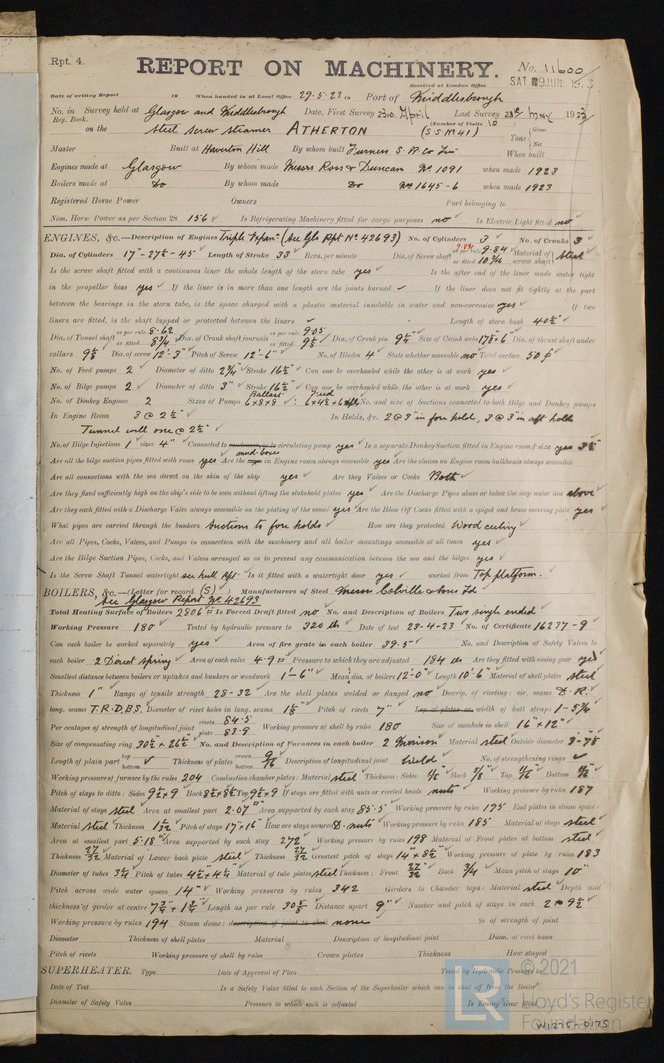 Rpt. 4.
REPORT ON MACHINERY.
No. 11600
Received at London Office
SAT. 9 JUN. 1923
Date of writing Report 19 When handed in at Local Office 29-5-23 Port of Middlesbrough
No. in Reg. Book. Survey held at Glasgow and Middlesbrough Date, First Survey 23rd April Last Survey 28th May 1923
(Number of Visits 10
on the Steel Screw Steamer ATHERTON (S S No 41) Tons Gross Net
Master Built at Haverton Hill By whom built Furness S B Co Lim When built
Engines made at Glasgow By whom made Messrs Ross & Duncan No 1091 when made 1923
Boilers made at Do By whom made Do No 1645-6 when made 1923
Registered Horse Power Owners Port belonging to
Nom. Horse Power as per Section 28 156 Is Refrigerating Machinery fitted for cargo purposes no Is Electric Light fitted no
ENGINES, &c.—Description of Engines Triple Expan (See Gls Rpt No 42693) No. of Cylinders 3 No. of Cranks 3
Dia. of Cylinders 17"-27½-45" Length of Stroke 33" Revs. per minute Dia. of Screw shaft as per rule 9.84 as fitted 10 3/16 Material of screw shaft steel
Is the screw shaft fitted with a continuous liner the whole length of the stern tube yes Is the after end of the liner made water tight
in the propeller boss yes If the liner is in more than one length are the joints burned If the liner does not fit tightly at the part
between the bearings in the stern tube, is the space charged with a plastic material insoluble in water and non-corrosive yes If two
liners are fitted, is the shaft lapped or protected between the liners Length of stern bush 40½"
Dia. of Tunnel shaft as per rule 8.62 as fitted 8¾ Dia. of Crank shaft journals as per rule 9.05 as fitted 9½ Dia. of Crank pin 9½ Size of Crank webs 17⅝×6" Dia. of thrust shaft under
collars 9½ Dia. of screw 12'-3" Pitch of Screw 12'-6" No. of Blades 4 State whether moveable no Total surface 50
No. of Feed pumps 2 Diameter of ditto 2¾ Stroke 16½ Can one be overhauled while the other is at work yes
No. of Bilge pumps 2 Diameter of ditto 3" Stroke 16½ Can one be overhauled while the other is at work yes
No. of Donkey Engines 2 Sizes of Pumps Ballast 6×8×8 : Feed 6×4½×6 No. and size of Suctions connected to both Bilge and Donkey pumps
In Engine Room 3 @ 2½" In Holds, &c. 2@3" in fore hold, 3@3" in aft hold
Tunnel well one @ 2½"
No. of Bilge Injections 1 sizes 4" Connected to circulating pump yes Is a separate Donkey Suction fitted in Engine room & size yes 3½
Are all the bilge suction pipes fitted with roses yes Are the mud boxes in Engine room always accessible yes Are the sluices on Engine room bulkheads always accessible
Are all connections with the sea direct on the skin of the ship yes Are they Valves or Cocks Both
Are they fixed sufficiently high on the ship's side to be seen without lifting the stokehold plates yes Are the Discharge Pipes above or below the deep water line above
Are they each fitted with a Discharge Valve always accessible on the plating of the vessel yes Are the Blow Off Cocks fitted with a spigot and brass covering plate yes
What pipes are carried through the bunkers Suctions to fore holds How are they protected Wood ceiling
Are all Pipes, Cocks, Valves, and Pumps in connection with the machinery and all boiler mountings accessible at all times yes
Are the Bilge Suction Pipes, Cocks, and Valves arranged so as to prevent any communication between the sea and the bilges yes
Is the Screw Shaft Tunnel watertight see hull Rpt Is it fitted with a watertight door yes worked from Top platform.
BOILERS, &c.—(Letter for record (S) Manufacturers of Steel Messrs Colville & Sons Ld
See Glasgow Report No 42693
Total Heating Surface of Boilers 2806 Is Forced Draft fitted no No. and Description of Boilers Two single ended
Working Pressure 180 Tested by hydraulic pressure to 320 lbs Date of test 28-4-23 No. of Certificate 16237-9
Can each boiler be worked separately yes Area of fire grate in each boiler 39.5 No. and Description of Safety Valves to
each boiler 2 Direct spring Area of each valve 4.9 Pressure to which they are adjusted 184 lbs Are they fitted with easing gear yes
Smallest distance between boilers or uptakes and bunkers or woodwork 1'-6" Mean dia. of boilers 12'-0" Length 10'-6" Material of shell plates steel
Thickness 1" Range of tensile strength 28-32 Are the shell plates welded or flanged no Descrip. of riveting: cir. seams D.R.
long. seams T.R.D.B.S. Diameter of rivet holes in long. seams Pitch of rivets 7" Lap of plates or width of butt straps 1-3¾
Per centages of strength of longitudinal joint rivets 84.5 plate 83.9 Working pressure of shell by rules 180 Size of manhole in shell 16"×12"
Size of compensating ring 30½×26½ No. and Description of Furnaces in each boiler 2 Morison Material steel Outside diameter
Length of plain part top bottom Thickness of plates crown bottom 9/16 Description of longitudinal joint weld No. of strengthening rings
Working pressure of furnace by the rules 204 Combustion chamber plates: Material steel Thickness: Sides Back Top Bottom
Pitch of stays to ditto: Sides 9½×9 Back Top 9½×9 If stays are fitted with nuts or riveted heads nuts Working pressure by rules 187
Material of stays steel Area at smallest part 2.07 Area supported by each stay 85.5 Working pressure by rules 175 End plates in steam space:
Material steel Thickness 1 1/32 Pitch of stays 17×16 How are stays secured D. nuts Working pressure by rules 185 Material of stays steel
Area at smallest part 5.18 Area supported by each stay 272 Working pressure by rules 198 Material of Front plates at bottom steel
Thickness 27/32 Material of Lower back plate steel Thickness 27/32 Greatest pitch of stays 14×8½ Working pressure of plate by rules 183
Diameter of tubes 3¼ Pitch of tubes 4½×4½ Material of tube plates steel Thickness: Front 27/32 Back ¾ Mean pitch of stays 10"
Pitch across wide water spaces 14" Working pressures by rules 342 Girders to Chamber tops: Material steel Depth and
thickness of girder at centre Length as per rule 30 Distance apart 9" Number and pitch of stays in each 2 @ 9½
Working pressure by rules 194 Steam dome: description of joint to shell none % of strength of joint
Diameter Thickness of shell plates Material Description of longitudinal joint Diam. of rivet holes
Pitch of rivets Working pressure of shell by rules Crown plates Thickness How stayed
SUPERHEATER. Type Date of Approval of Plan Tested by Hydraulic Pressure to
Date of Test Is a Safety Valve fitted to each Section of the Superheater which can be shut off from the Boiler
Diameter of Safety Valve Pressure to which each is adjusted Is Easing Gear fitted
© 2021
LR
Lloyd's Register
Foundation
W1275-0175